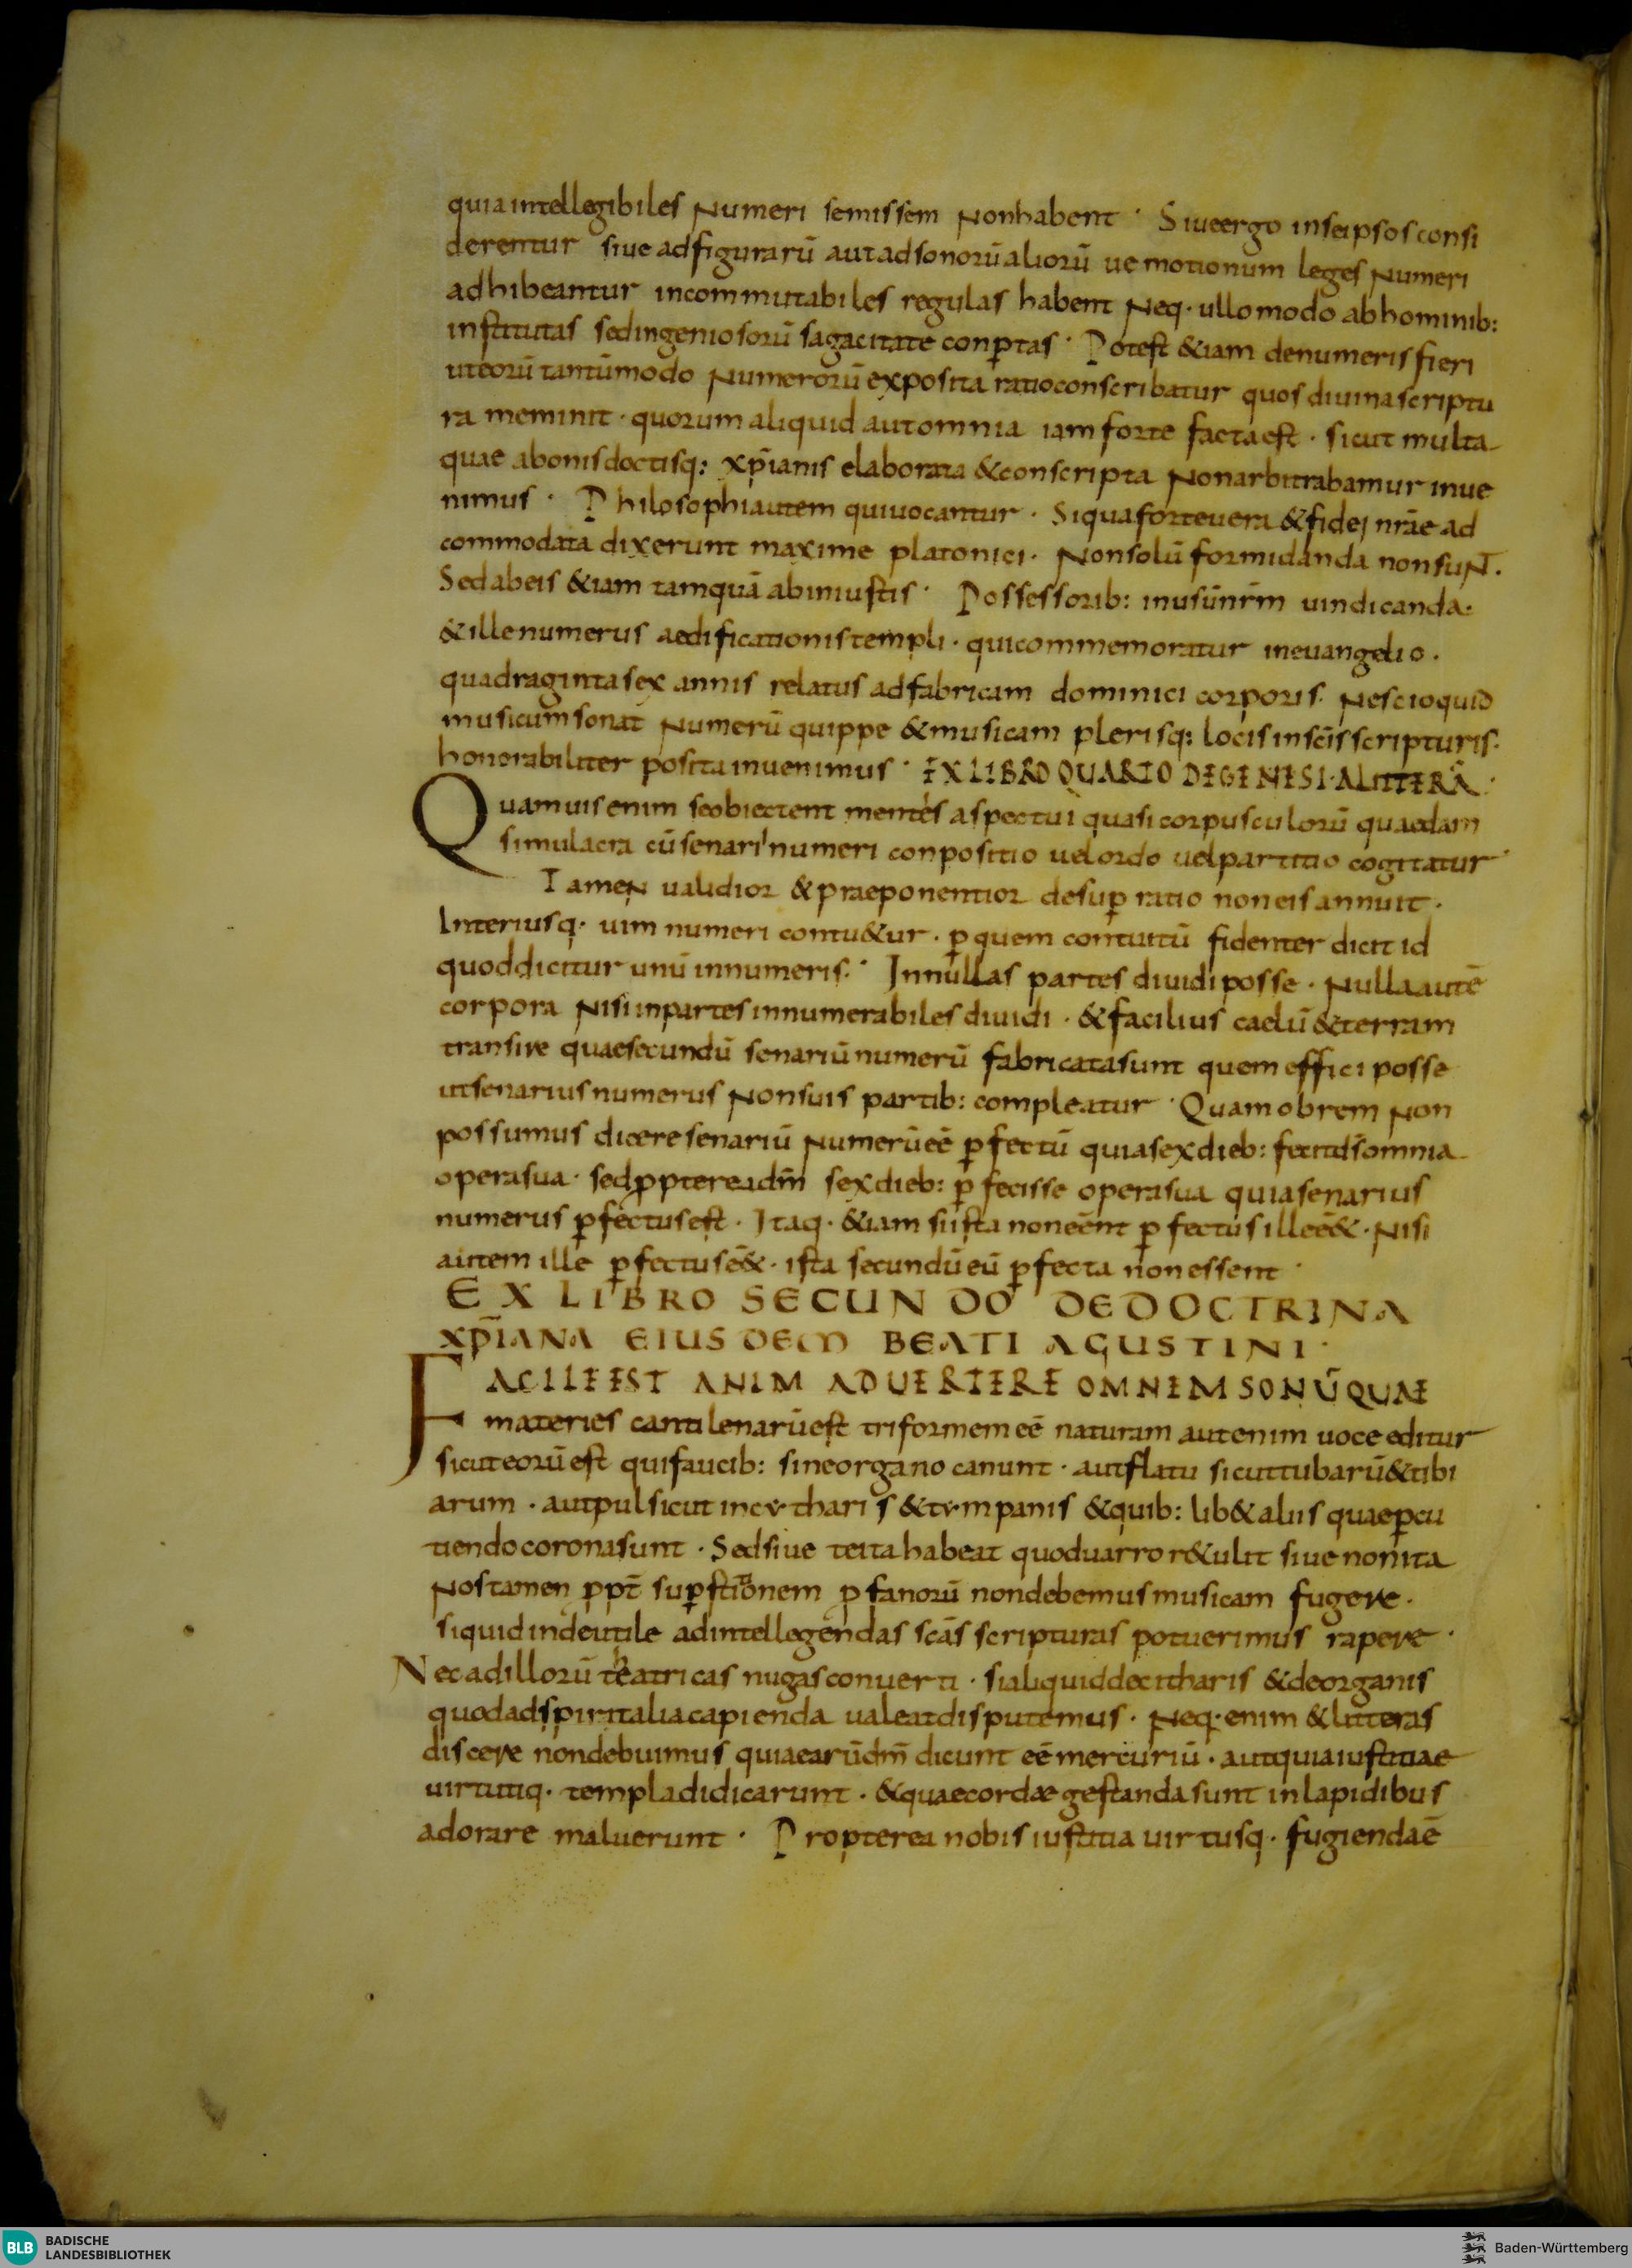 quia intellegibiles Numeri semissem Nonhabent · Siueergo inseipsos consi
derentur siue adfigurarū aut adsonorū aliorū ue motionum leges Numeri
adhibeantur incommutabiles regulas habent Neq· ullomodo abhominib:
institutas sedingeniosorū sagacitate conꝑtas · Potest &iam denumeris fieri
uteorū tantūmodo Numerorū exposita ratio conscribatur quos diuina scriptu
ra meminit · quorum aliquid aut omnia iam forte facta est · sicut multa
quae abonis doctisq: xp̄ianis elaborata & conscripta Nonarbitrabamur inue
nimus · Philosophi autem qui uocantur · Siqua forte uera & fidei nr̄ae ad
commodata dixerunt maxime platonici · Nonsolū formidanda non suNT·
Sedabeis &iam tamquā abiniustis · Possessorib: inusūnr̄m uindicanda·
&ille numerus aedificationis templi · qui commemoratur ineuangelio ·
quadraginta sex annis relatus adfabricam dominici corporis· Nescioquid
musicum sonat Numerū quippe & musicam plerisq: locis inscīs scripturis·
honorabiliter posita inuenimus · EX LIBRO QUARTO DEGENESI·ALITTERĀ·
Quamuis enim seobiectent mentes aspectui quasi corpusculorū quaedam
simulacra cū senarii numeri conpositio uel ordo uel partitio cogitatur
TameN ualidior & praeponentior desuꝑ ratio noneis annuit ·
Interiusq· uim numeri contu&ur · ꝑ quem contuitū fidenter dicit id
quod dicitur unū innumeris · Innullas partes diuidi posse · Nulla autē
corpora Nisi inpartes innumerabiles diuidi · & facilius caelū & terram
transire quae secundū senariū numerū fabricata sunt quem effici posse
ut senarius numerus Nonsuis partib: compleatur · Quamobrem Non
possumus dicere senariū Numerū eē ꝑfectū quia sex dieb: fecitds̄ omnia
opera sua · sed ꝓpterea dm̄ sex dieb: ꝑfecisse opera sua quia senarius
numerus ꝑfectus est · Itaq· &iam si ista non eēnt ꝑfectus ille eē& · Nisi
autem ille ꝑfectus eē& · ista secundū eū ꝑfecta non essent ·
EX LIBRO SECUNDO DE DOCTRINA
XP̄IANA EIUSDEM BEATI AGUSTINI·
FACILE EST ANIM ADUERTERE OMNEM SONŪ QUAE
materies cantilenarū est triformem eē naturam aut enim uoce editur
sicut eorū est qui faucib: sine organo canunt · aut flatu sicut tubarū & tibi
arum · aut pulsi cut in cytharis & tympanis & quib: lib& aliis quae ꝑcu
tiendo corona sunt · Sed siue te ita habeat quod uarro r&ulit siue non ita
Nos tamen ꝓpt̄ suꝑstitionem ꝓfanorū non debemus musicam fugere ·
siquid inde utile ad intellegendas scās scripturas potuerimus rapere ·
Nec adillorū theatricas nugas conuerti · si aliquid decitharis & deorganis
quod ad spiritalia capienda ualeat disputemus · Neq· enim & litteras
discere non debuimus quia earū dm̄ dicunt eē mercuriū · aut quia iustitiae
uirtutiq· templa didicarunt · & quae cordae gestanda sunt in lapidibus
adorare maluerunt · Propterea nobis iustitia uirtusq· fugiendaē
BLB BADISCHE LANDESBIBLIOTHEK
Baden-Württemberg